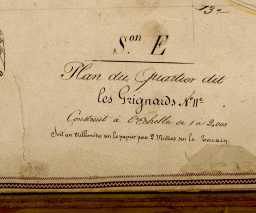 13e
S.on E
Plan du Quartier dit
les Grignards N.° 11.e
Construit à l'Echelle de 1 à 2,000
Soit un Millimètre sur le papier pour 2 Mètres sur le Terrain.